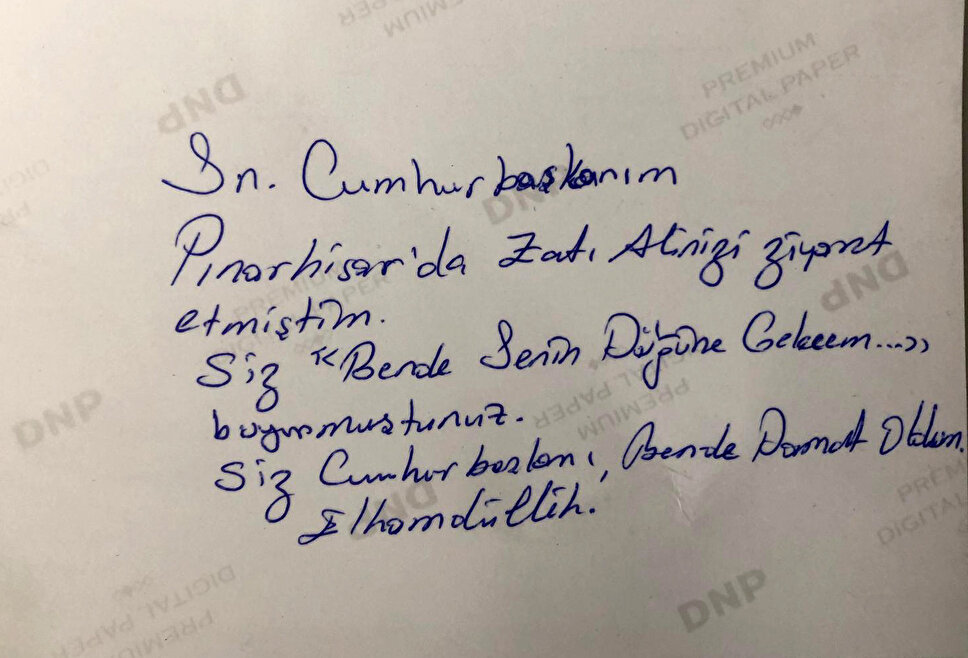 Sn. Cumhurbaşkanım
Pınarhisar'da Zatı Alinizi ziyaret
etmiştim.
Siz "Bende Senin Düğüne Gelecem...»
buyurmuştunuz.
Siz Cumhurbaşkanı, Bende Damat Oldum.
Elhamdülilih.
DNP
PREMIUM
DIGITAL PAPER